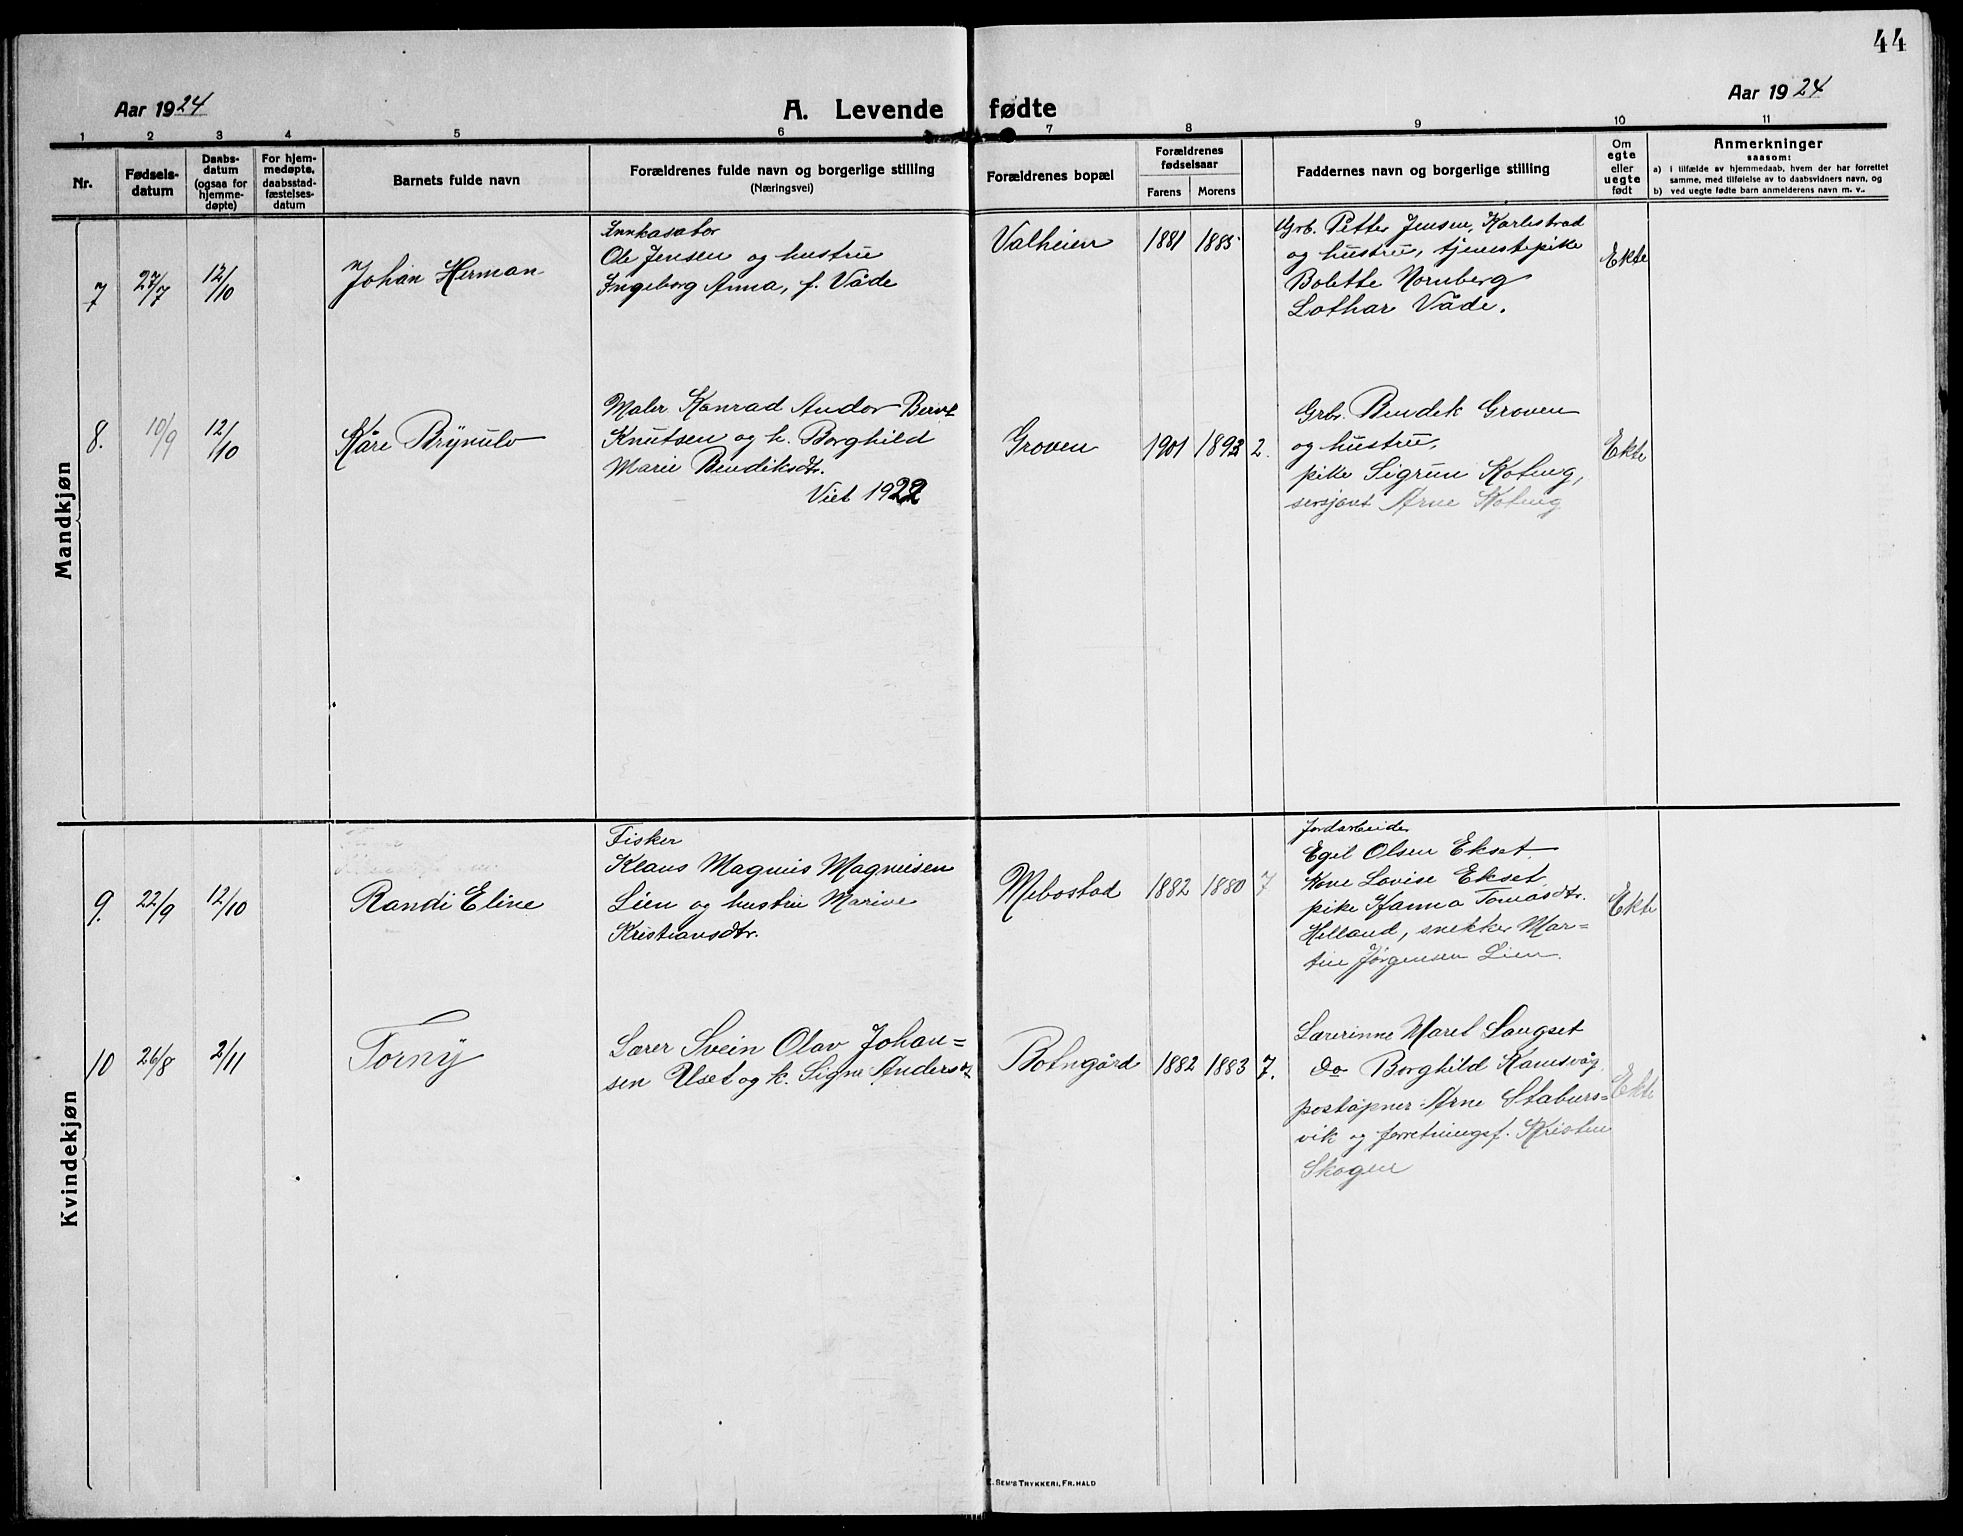 44
Aar 1924
A. Levende fødte
Aar 1924
1 2 3 4 5 6 7 8 9 10 11
Nr.
Fødsels-
datum
Daabs-
datum
(ogsaa for
hjemme-
døpte)
For hjem-
medøpte,
daabsstad-
fæstelses-
datum
Barnets fulde navn
Forældrenes fulde navn og borgerlige stilling
(Næringsvei)
Forældrenes bopæl
Forældrenes
fødselsaar
Farens Morens
Faddernes navn og borgerlige stilling
Om
egte
eller
uegte
født
Anmerkninger
saasom:
a) i tilfælde av hjemmedaab, hvem der har forrettet
samme, med tilføielse av to daabsvidners navn, og
b) ved uegte fødte barn anmelderens navn m. v..
Mandkjøn
7 27/7 12/10
Johan Herman
Innkasator
Ole Jensen og hustru
Ingeborg Anna, f. Våde
Valheien 1881 1885
Grb. Petter Jensen, Karlestrad
og hustru, tjenestepike
Bolette Nornberg
Lothar Våde.
Ekte
8. 10/9 12/10
Kåre Brynulv
Maler Konrad Andor Bernt
Knutsen og h. Borghild
Marie Bendiksdtr.
Viet 1922
Groven 1901 1893 2.
Grbr. Bendik Groven
og hustru,
pike Sigrun Koteng,
sersjant Arne Koteng
Ekte
Kvindekjøn
9. 22/9 12/10
Randi Eline
Fisker
Klaus Magnus Magnusen
Lien og hustru Marine
Kristiansdtr.
Mebostad 1882 1880 7
Jordarbeider
Egil Olsen Ekset
Kone Lovise Ekset
pike Hanna Tomasdtr.
Helland, snekker Mar-
tin Jørgensen Lien.
Ekte
10 26/8 2/11
Torny
Lærer Svein Olav Johan=
sen Uset og h. Signe Andersdt
Botngård 1882 1883 7.
Lærerinne Maret Laugset
do Borghild Ramsvåg
poståpner Arne Staburs=
vik og forretningsf. Kristen
Skogen
Ekte
E. SEM'S TRYKKERI, FR. HALD